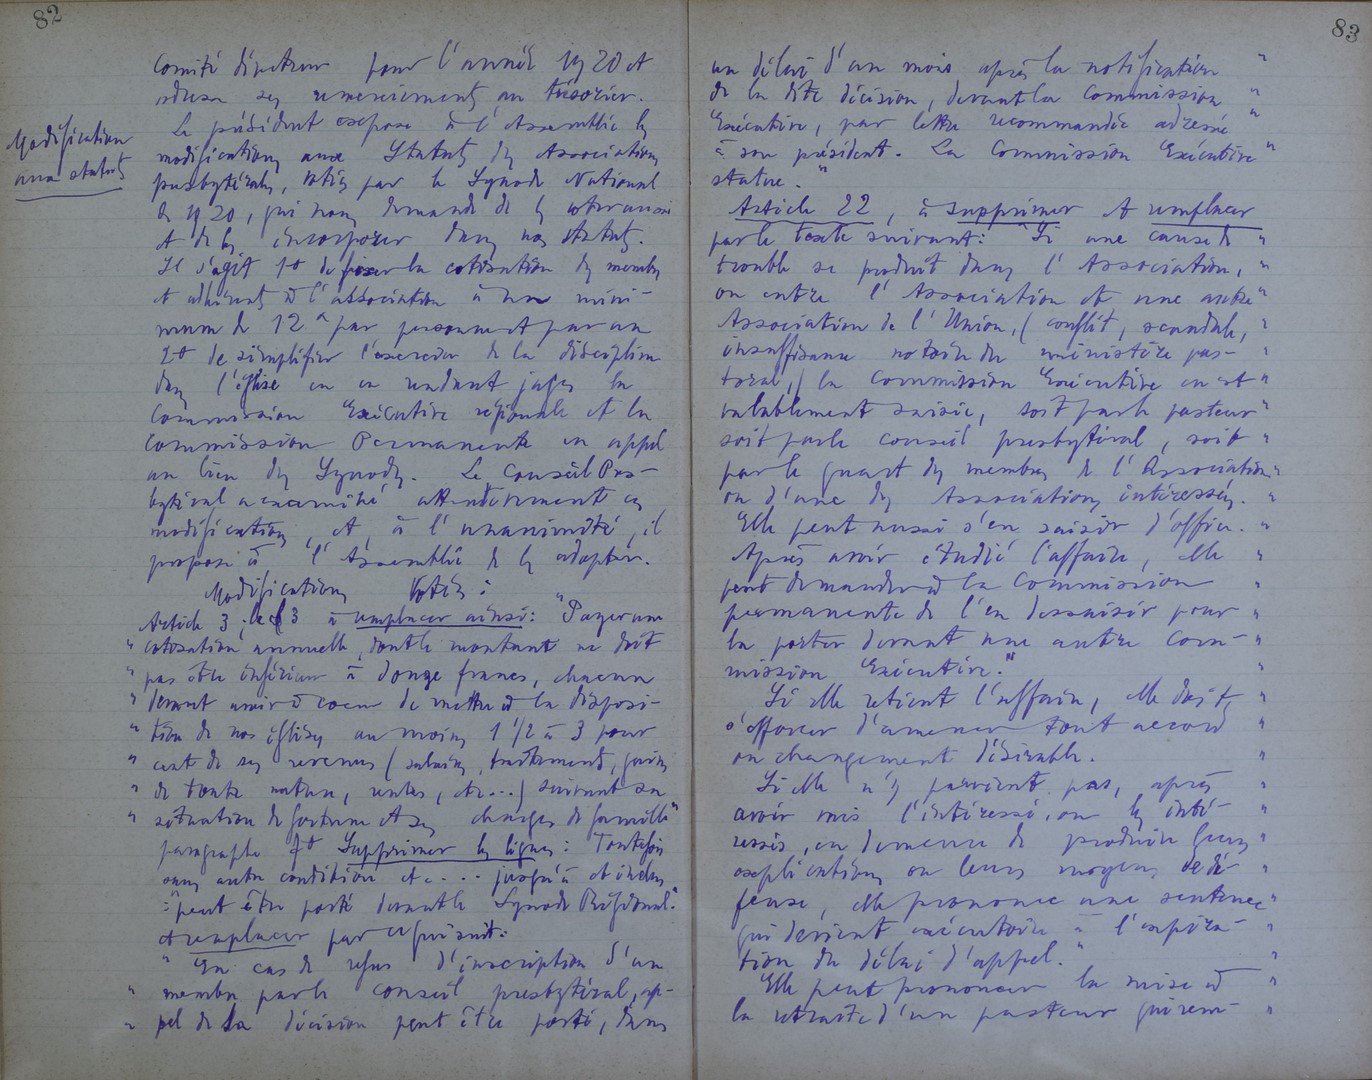 82
Comité directeur pour l'année 1920 et
adresse ses remerciements au trésorier.
Modification
aux statuts
Le président expose à l'Assemblée les
modifications aux Statuts des Associations
presbytérales, votés par le Synode National
de 1920, qui nous demande de les voter aussi
et de les incorporer dans nos statuts.
Il s'agit 1º de fixer la cotisation des membres
et adhérents à l'association à un mini-
mum de 12 par personne et par an
2º de simplifier l'exercice de la discipline
dans l'église en en rendant juges la
Commission Exécutive régionale et la
Commission Permanente en appel
au lieu des Synodes. Le Conseil Pres-
bytéral a examiné attentivement ces
modifications, et, à l'unanimité, il
propose à l'Assemblée de les adopter.
Modifications Votées :
Article 3, le § 3 à remplacer ainsi: "Payer une
" cotisation annuelle, dont le montant ne doit
" pas être inférieur à douze francs, chacun
" devant avoir à coeur de mettre à la disposi-
" tion de nos églises au moins 1 1/2 à 3 pour
" cent de ses revenus (salaires, traitement, gains
" de toute nature, rentes, etc...) suivant sa
" situation de fortune et ses charges de famille"
paragraphe 7º Supprimer les lignes: Toutefois
sans autre condition etc.... jusqu'à et inclus
"peut être porté devant le Synode Régional."
et remplacer par ce qui suit:
" En cas de refus d'inscription d'un
" membre par le conseil presbytéral, ap-
" pel de la décision peut être porté, dans
83
un délai d'un mois après la notification "
de la dite décision, devant la Commission "
Exécutive, par lettre recommandée adressée "
à son président. La Commission Exécutive "
statue. "
Article 22, à supprimer et remplacer
par le texte suivant: "Si une cause de "
trouble se produit dans l'Association, "
ou entre l'Association et une autre "
Association de l'Union, (conflit, scandale, "
insuffisance notoire du ministère pas- "
toral,) la Commission Exécutive en est "
valablement saisie, soit par le pasteur "
soit par le conseil presbytéral, soit "
par le quart des membres de l'Association "
ou d'une des Associations intéressées. "
Elle peut aussi s'en saisir d'office. "
Après avoir étudié l'affaire, elle "
peut demander à la Commission "
permanente de l'en dessaisir pour "
la porter devant une autre Com- "
mission Exécutive." "
Si elle retient l'affaire, elle doit "
s'efforcer d'amener tout accord "
ou changement désirable. "
Si elle n'y parvient pas, après "
avoir mis l'intéressé, ou les inté- "
ressés, en demeure de produire leurs "
explications ou leurs moyens de dé- "
fense, elle prononce une sentence "
qui devient exécutoire à l'expira- "
tion du délai d'appel." "
Elle peut prononcer la mise à "
la retraite d'un pasteur qui rem- "